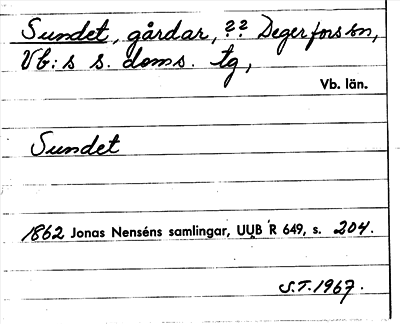 Sundet, gårdar, ?? Degerfors sn,
Vb:s s. doms. tg,
Vb. län.
Sundet
1862 Jonas Nenséns samlingar, UUB R 649, s. 204.
S.T. 1967.